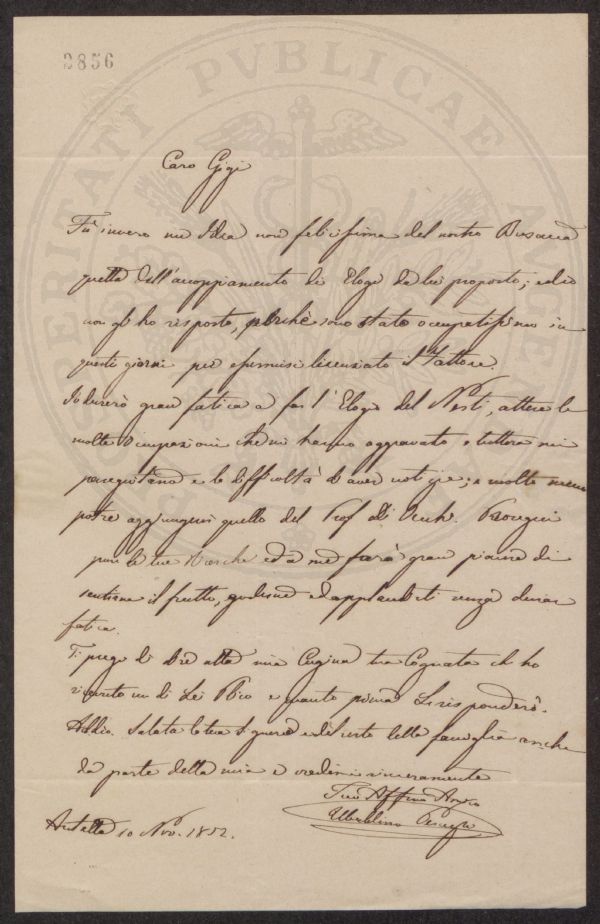 2856
PROSPERITATI PVBLICAE AVGENDAE
Caro Gigi
Fu invero un Idea non felicissima del nostro
quella dell'accoppiamento di Elogi da lui proposto; ed io
non gli ho risposto, perchè sono stato occupatissimo in
questi giorni per essermisi licenziato il Fattore.
Io durerò gran fatica a far l'Elogio del Nesti, attese le
molte occupazioni che mi hanno aggravato e tuttora mi
perseguitano e le difficoltà di aver notizie; e molto meno
potrò aggiungervi quello del Prof. Proseguì
pure le tue ricerche ed a me farà gran piacere di
sentirne il frutto, goderne ed applaudirti senza durar
fatica.
Ti prego di dire alla mia Cugina tua Cognata che ho
ricevuto un di Lei Plico e quanto prima Le risponderò.
Addio. Saluta la tua Signora ed il resto della famiglia anche
da parte della mia e credimi sinceramente
Tuo Affmo Amico
Ubaldino Peruzzi
Antella 10 Nov. 1852.